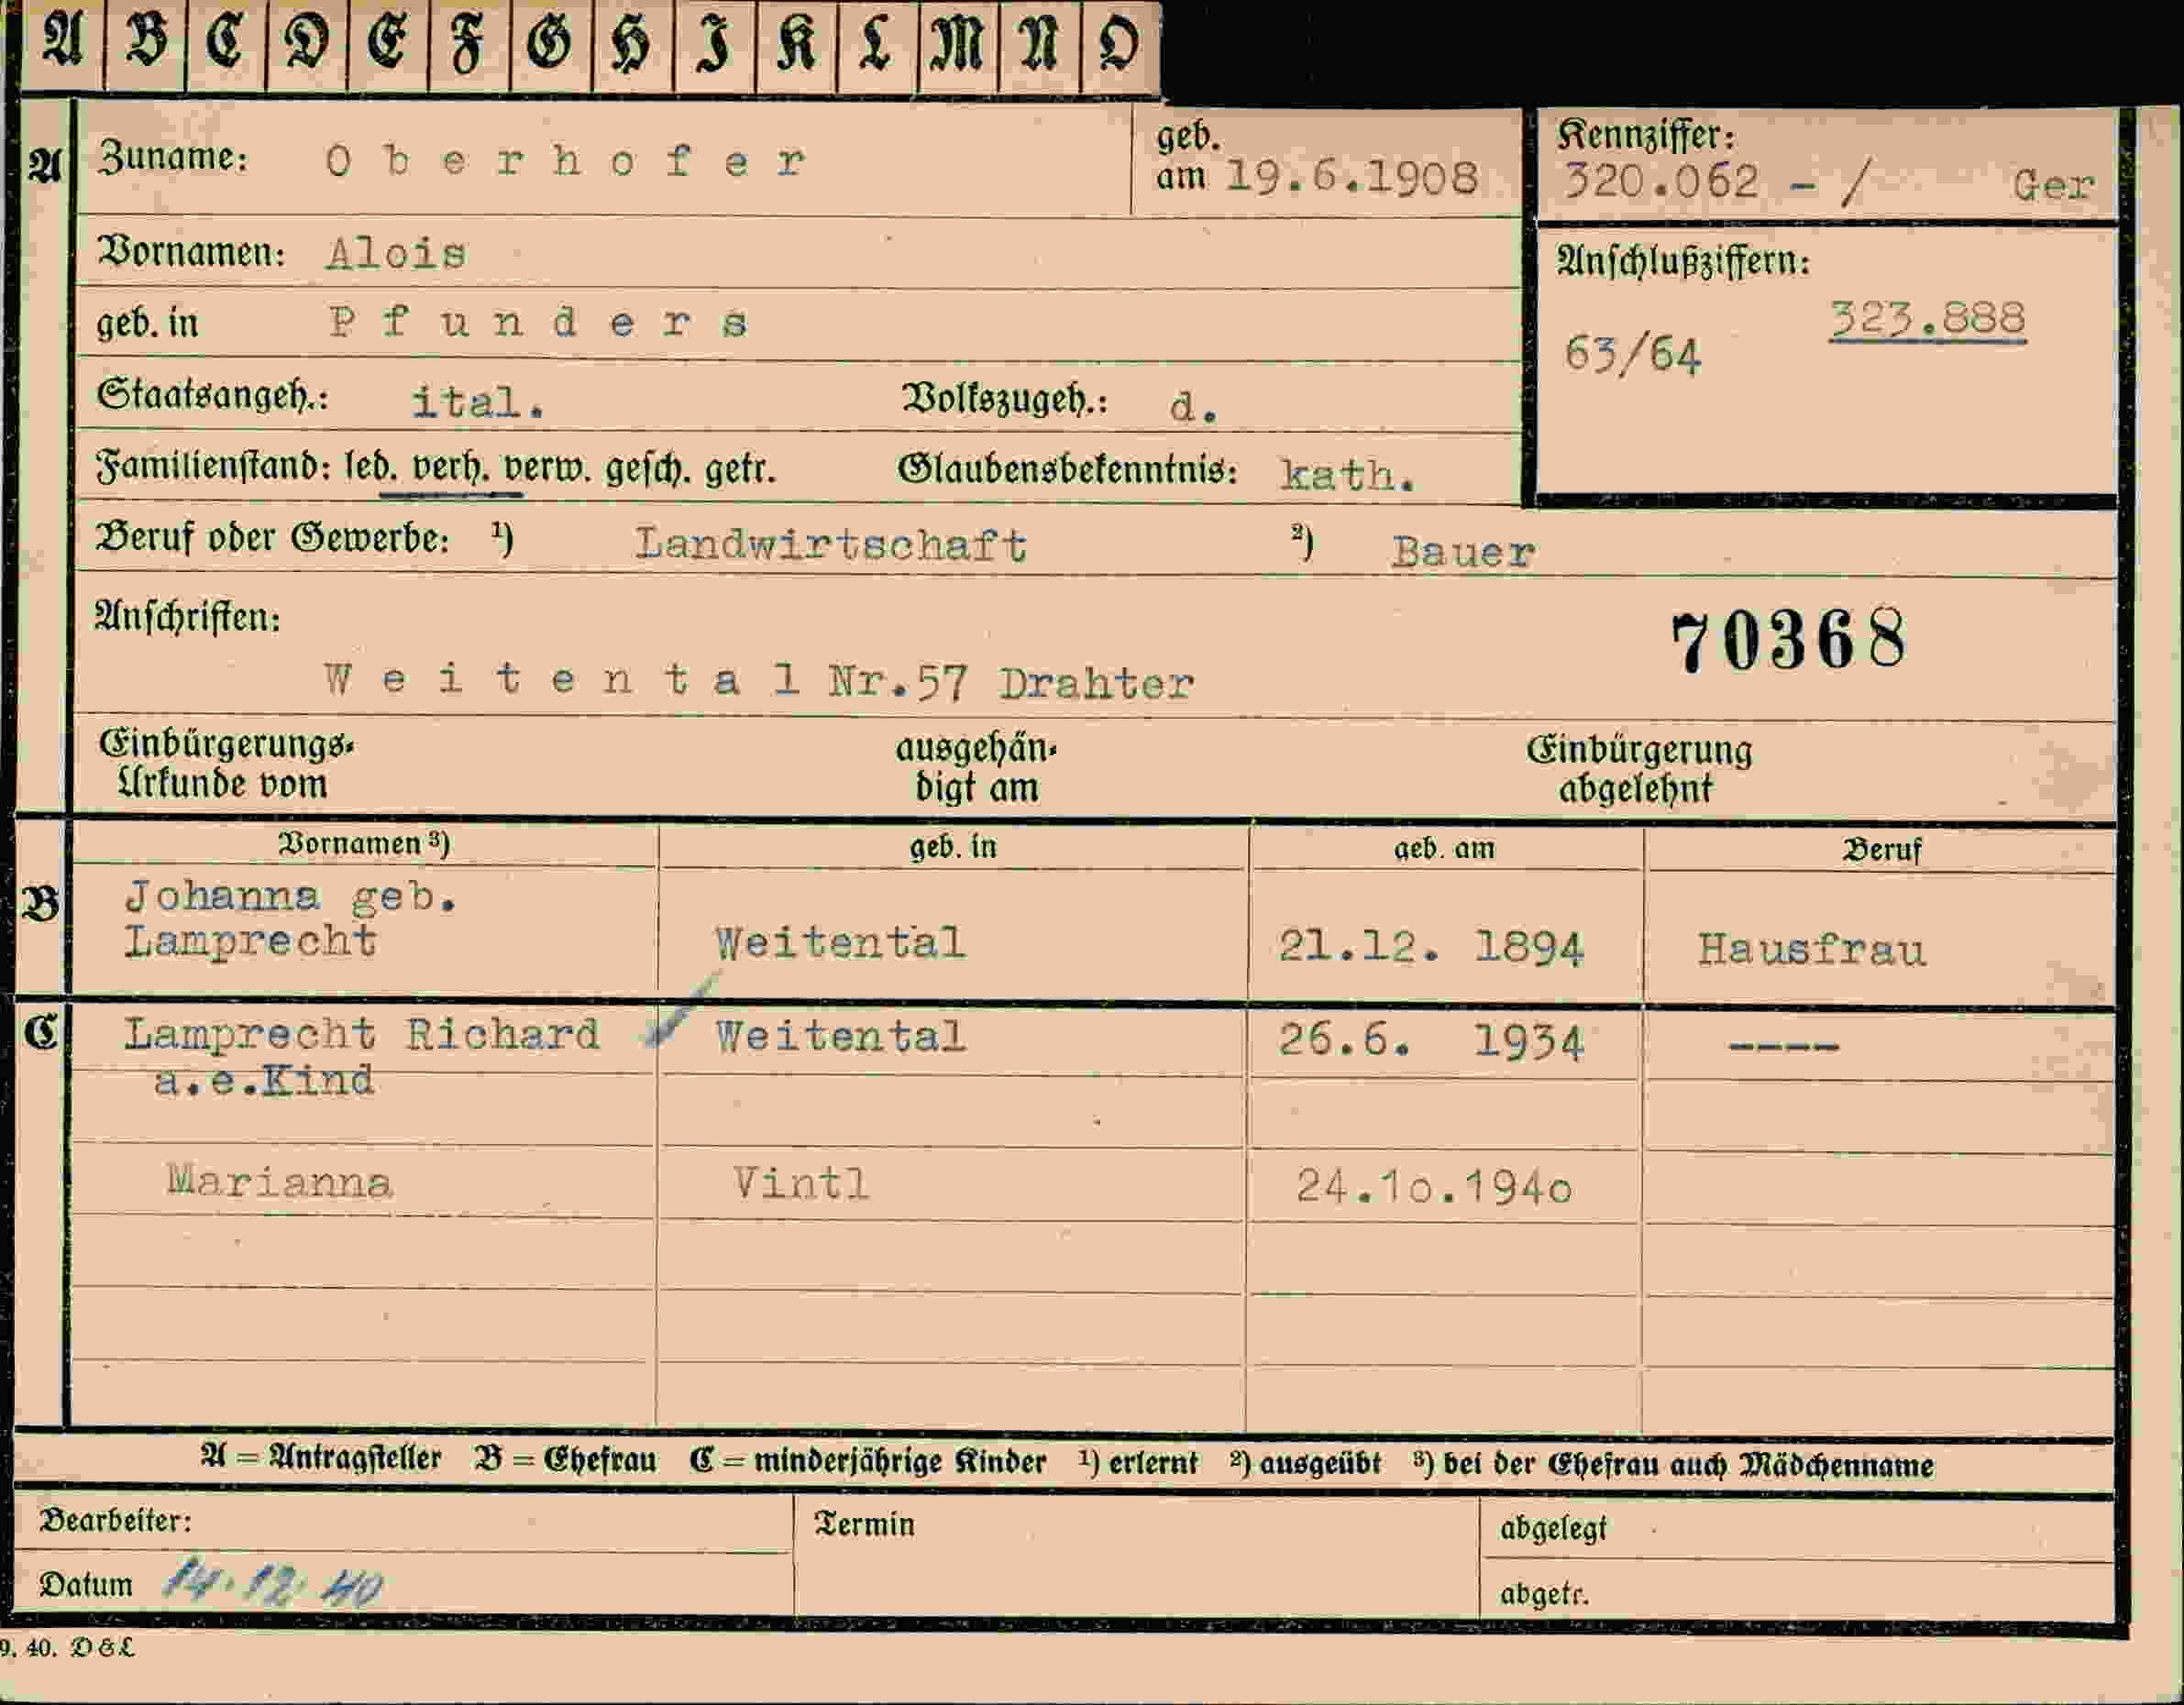 A B C D E F G H I K L M N O
A Zuname: Oberhofer geb. am 19.6.1908
Kennziffer: 320.062 - / Ger
Vornamen: Alois
Anschlußziffern:
323.888
63/64
geb. in Pfunders
Staatsangeh.: ital. Volkszugeh.: d.
Familienstand: led. verh. verw. gesch. getr. Glaubensbekenntnis: kath.
Beruf oder Gewerbe: 1) Landwirtschaft 2) Bauer
Anschriften:
70368
Weitental Nr.57 Drahter
Einbürgerungs- ausgehän- Einbürgerung
Urkunde vom digt am abgelehnt
Vornamen 3) geb. in geb. am Beruf
B Johanna geb.
Lamprecht Weitental 21.12. 1894 Hausfrau
C Lamprecht Richard Weitental 26.6. 1934 ----
a.e.Kind
Marianna Vintl 24.1o.194o
A = Antragsteller B = Ehefrau C = minderjährige Kinder 1) erlernt 2) ausgeübt 3) bei der Ehefrau auch Mädchenname
Bearbeiter: Termin abgelegt
Datum 14.12.40 abgetr.
9. 40. D & L